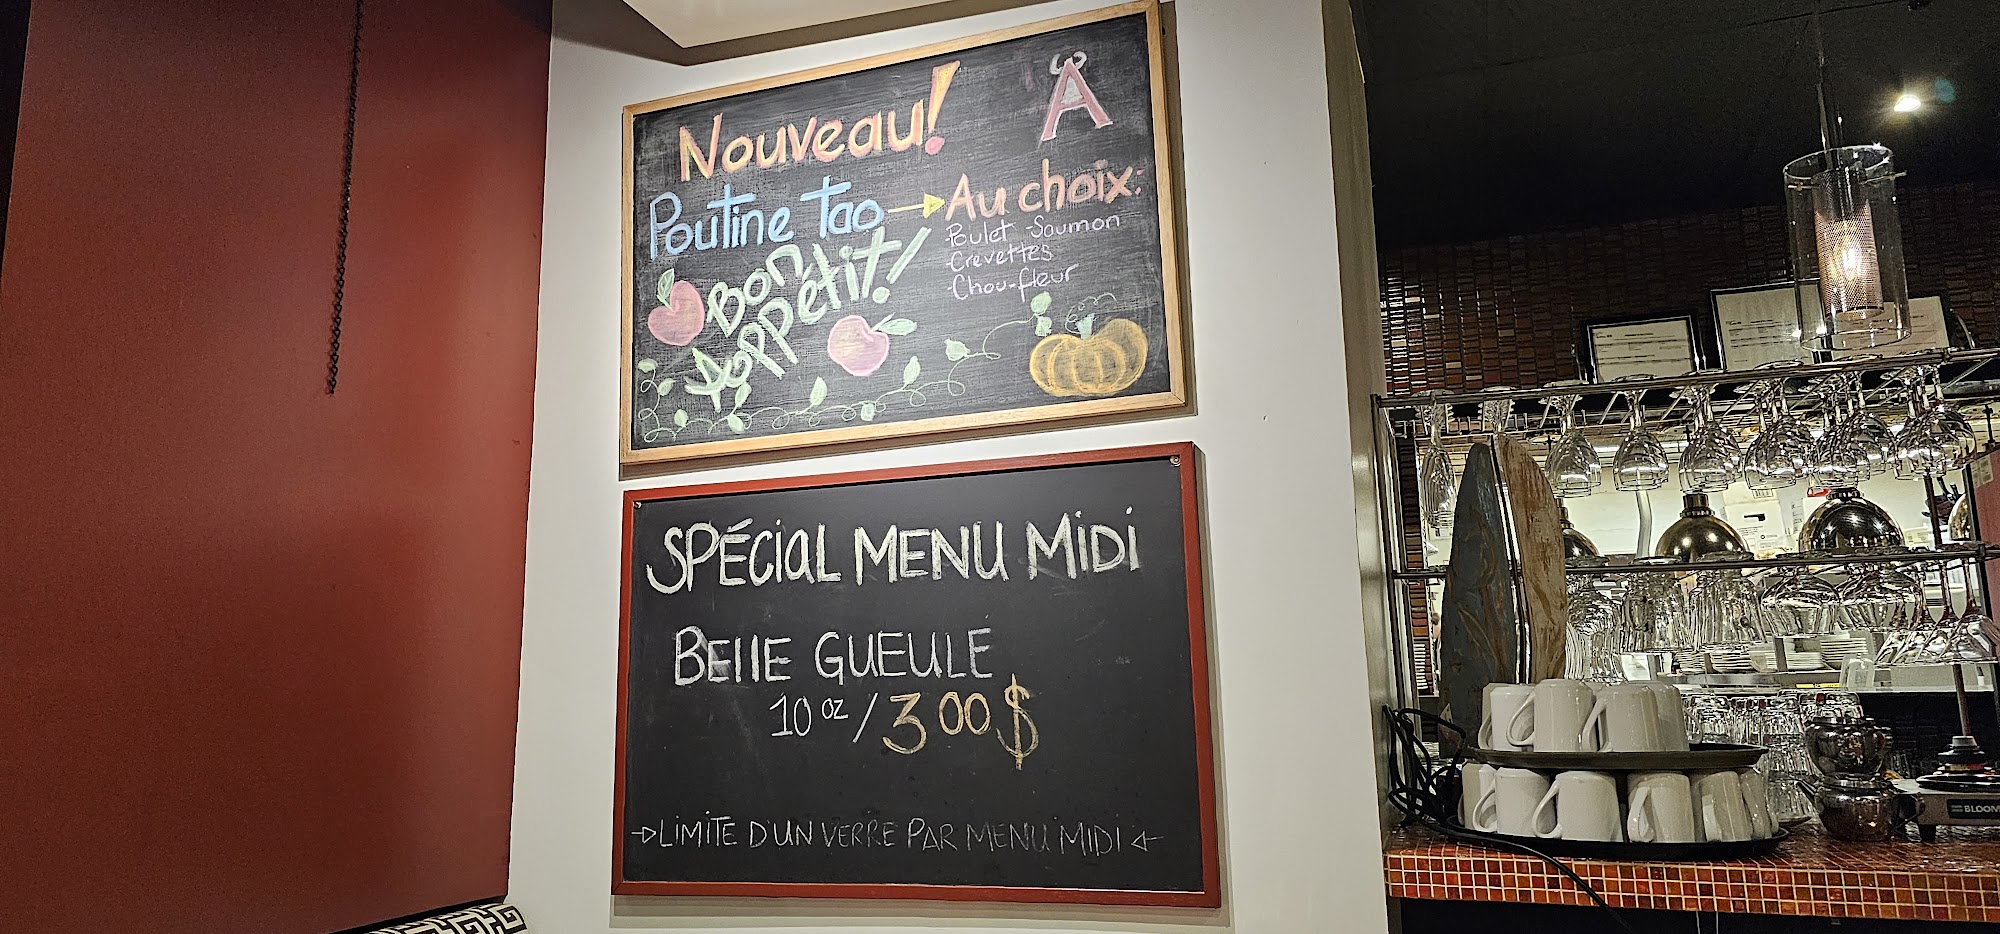 Nouveau!
Å
Poutine Tao → Au choix:
-Poulet -Saumon
-Crevettes
-Chou-fleur
Bon
Appétit!
SPÉCIAL MENU MIDI
BELLE GUEULE
10 oz / 3 00 $
→ LIMITE D'UN VERRE PAR MENU MIDI ←
BLOOM